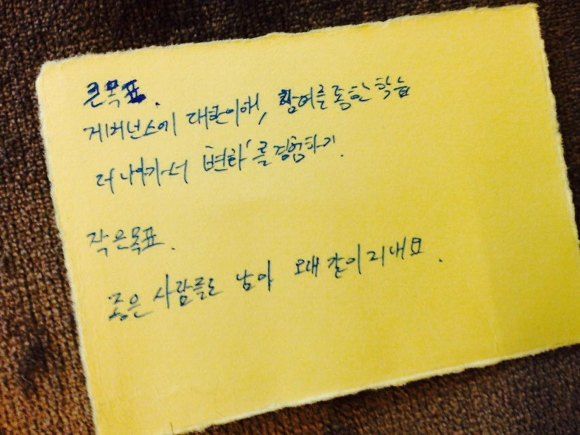 큰목표.
게버넌스에 대한이해, 참여를 통한 학습
더 나아가서 '변화'를 경험하기.
작은목표.
좋은 사람들로 남아 오래 같이 지내요.